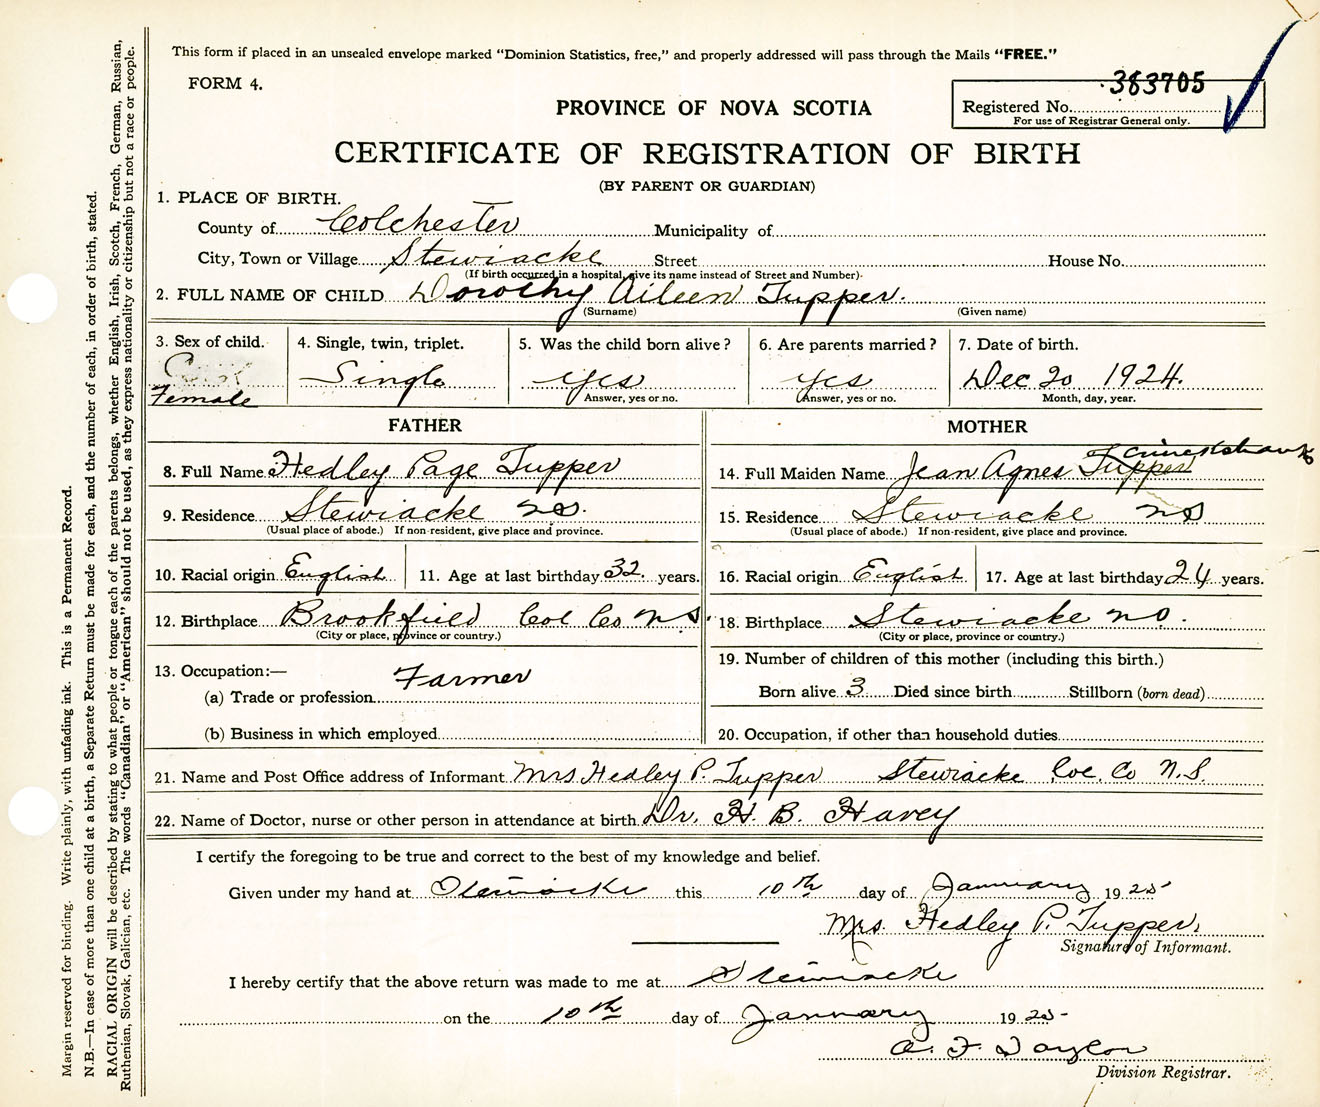 This form if placed in an unsealed envelope marked "Dominion Statistics, free," and properly addressed will pass through the Mails "FREE."
FORM 4.
383705
Registered No.
For use of Registrar General only.
PROVINCE OF NOVA SCOTIA
CERTIFICATE OF REGISTRATION OF BIRTH
(BY PARENT OR GUARDIAN)
1. PLACE OF BIRTH.
County of Colchester Municipality of
City, Town or Village Stewiacke Street House No.
(If birth occurred in a hospital, give its name instead of Street and Number)
2. FULL NAME OF CHILD Dorothy Aileen Tupper.
(Surname) (Given name)
3. Sex of child. 4. Single, twin, triplet. 5. Was the child born alive? 6. Are parents married? 7. Date of birth.
Female Single yes yes Dec 20 1924.
Answer, yes or no. Answer, yes or no. Month, day, year.
FATHER
8. Full Name Hedley Page Tupper
9. Residence Stewiacke NS.
(Usual place of abode.) If non-resident, give place and province.
10. Racial origin English 11. Age at last birthday 32 years.
12. Birthplace Brookfield Col Co NS.
(City or place, province or country.)
13. Occupation:—
(a) Trade or profession Farmer
(b) Business in which employed
MOTHER
14. Full Maiden Name Jean Agnes Tupper
15. Residence Stewiacke NS
(Usual place of abode.) If non-resident, give place and province.
16. Racial origin English 17. Age at last birthday 24 years.
18. Birthplace Stewiacke NS.
(City or place, province or country.)
19. Number of children of this mother (including this birth.)
Born alive 3 Died since birth Stillborn (born dead)
20. Occupation, if other than household duties
21. Name and Post Office address of Informant Mrs Hedley P. Tupper Stewiacke Col. Co N.S.
22. Name of Doctor, nurse or other person in attendance at birth Dr. H. B. Havey
I certify the foregoing to be true and correct to the best of my knowledge and belief.
Given under my hand at Stewiacke this 10th day of January 1925
Mrs. Hedley P. Tupper.
Signature of Informant.
I hereby certify that the above return was made to me at Stewiacke
on the 10th day of January 1925
A. F. Taylor
Division Registrar.
Margin reserved for binding. Write plainly, with unfading ink. This is a Permanent Record.
N.B.—In case of more than one child at a birth, a Separate Return must be made for each, and the number of each, in order of birth, stated.
RACIAL ORIGIN will be described by stating to what people or tongue each of the parents belongs, whether English, Irish, Scotch, French, German, Russian,
Ruthenian, Slovak, Galician, etc. The words "Canadian" or "American" should not be used, as they express nationality or citizenship but not a race or people.